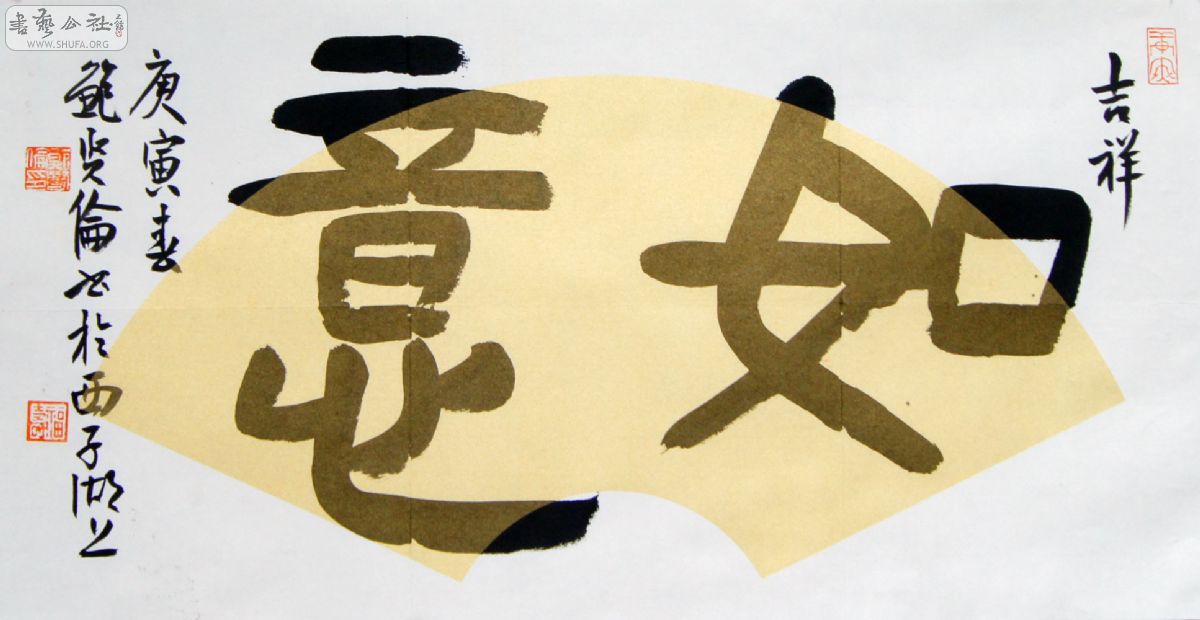 吉祥
如意
庚寅春
鲍贤倫书於西子湖上
書藝公社
WWW.SHUFA.ORG